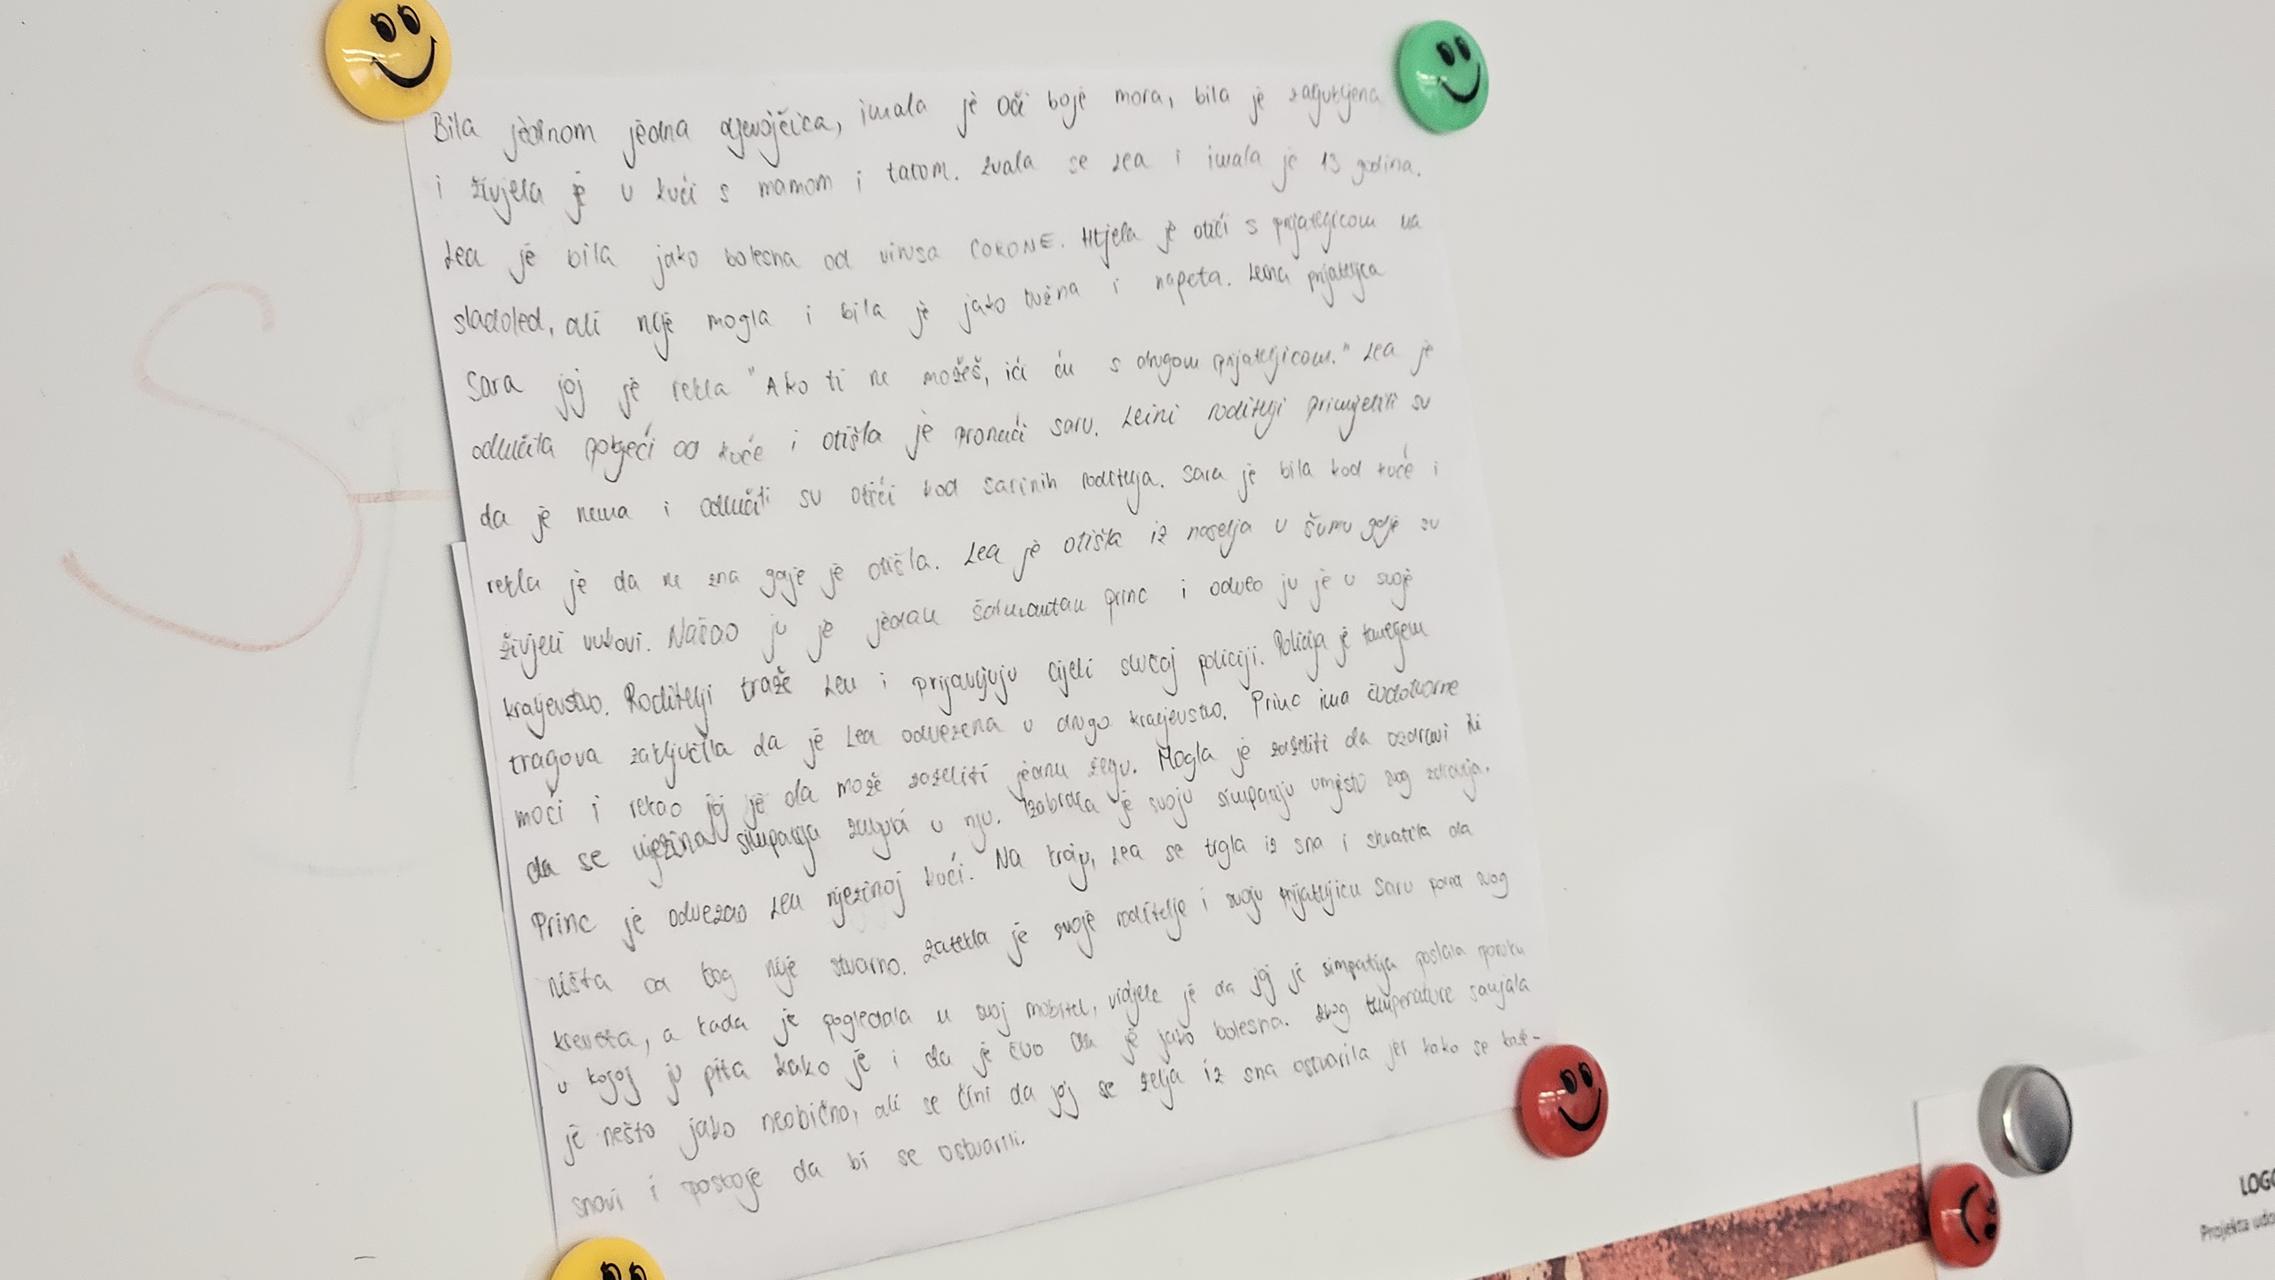 Bila jednom jedna djevojčica, imala je oči boje mora, bila je zaljubljena
i živjela je u kući s mamom i tatom. Zvala se Lea i imala je 13 godina.
Lea je bila jako bolesna od virusa CORONE. Htjela je otići s prijateljicom na
sladoled, ali nije mogla i bila je jako tužna i napeta. Leina prijateljica
Sara joj je rekla "Ako ti ne možeš, ići ću s drugom prijateljicom." Lea je
odlučila pobjeći od kuće i otišla je pronaći Saru. Leini roditelji primjetili su
da je nema i odlučili su otići kod Sarinih roditelja. Sara je bila kod kuće i
rekla je da ne zna gdje je otišla. Lea je otišla iz naselja u šumu gdje su
živjeli vukovi. Našao ju je jedan šarmantan princ i odveo ju je u svoje
kraljevstvo. Roditelji traže Leu i prijavljuju cijeli slučaj policiji. Policija je temeljem
tragova zaključila da je Lea odvezena u drugo kraljevstvo. Princ ima čudotvorne
moći i rekao joj je da može zaželiti jednu želju. Mogla je zaželiti da ozdravi ili
da se njezina simpatija zaljubi u nju. Izabrala je svoju simpatiju umjesto svog zdravlja.
Princ je odvezao Leu njezinoj kući. Na kraju, Lea se trgla iz sna i shvatila da
ništa od tog nije stvarno. Zatekla je svoje roditelje i svoju prijateljicu Saru pored svog
kreveta, a kada je pogledala u svoj mobitel, vidjela je da joj je simpatija poslala poruku
u kojoj ju pita kako je i da je čuo da je jako bolesna. Zbog temperature sanjala
je nešto jako neobično, ali se čini da joj se želja iz sna ostvarila jer kako se kaže-
snovi i postoje da bi se ostvarili.
LOGO
Projekta udo